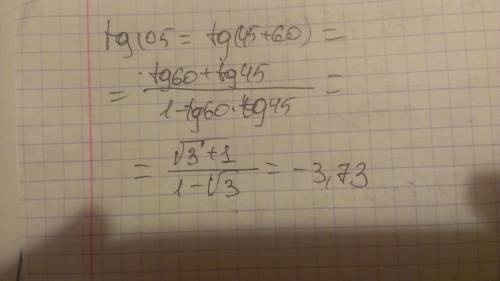 tg105 = tg(45+60) =
= (tg60+tg45)/(1-tg60·tg45) =
= (√3+1)/(1-√3) = -3,73